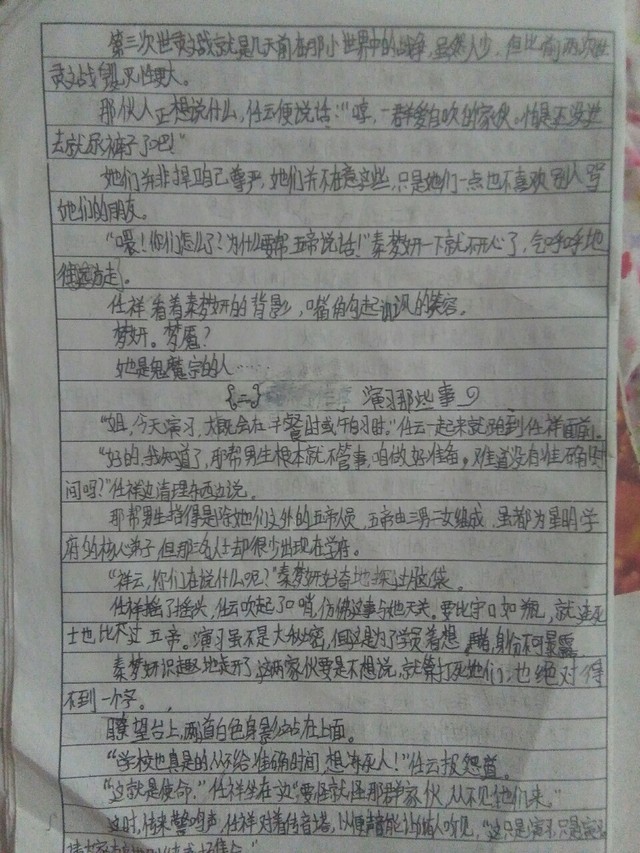 第三次世贡文战就是几天前在那小世界中的战争,虽然人少,但比前两次世
贡文战毁灭性更大。
那伙人正想说什么,任云便说话:"哼,一群爱自吹的家伙。怕是还没进
去就尿裤子了吧!"
她们并非捍卫自己尊严,她们并不在意这些,只是她们一点也不喜欢别人骂
她们的朋友。
"喂!你们怎么了?为什么要帮五帝说话!"秦梦妍一下就不开心了,气呼呼地
往远方走。
任祥看着秦梦妍的背影,嘴角勾起讥讽的笑容。
梦妍。梦魇?
她是鬼魔宗的人……
{二} 演习那些事
"姐,今天演习,大概会在早餐时或午习时。"任云一起来就跑到任祥面前。
"好的,我知道了,那帮男生根本就不管事,咱做好准备。难道没有准确时
间吗?"任祥边清理东西边说。
那帮男生指得是除她们之外的五帝人员,五帝由三男二女组成,虽都为星明学
府的核心弟子,但那三名人士却很少出现在学府。
"祥云,你们在说什么呢?"秦梦妍好奇地探出脑袋。
任祥摇了摇头,任云吹起了口哨,仿佛这事与她无关。要比守口如瓶,就连死
士也比不过五帝。演习虽不是大秘密,但这是为了学员着想,再者,身份不可暴露
秦梦妍识趣地走开了,这两家伙要是不想说,就算打死她们,也绝对得
不到一个字。
瞭望台上,两道白色身影站在上面。
"学校也真是的从不给准确时间,想冻死人!"任云报怨道。
"这就是使命。"任祥坐在一边"要怪就怪那群家伙,从不见他们来。"
这时,传来警鸣声,任祥对着传音塔,以便声音能让始人听见,"这只是演习,只是演习